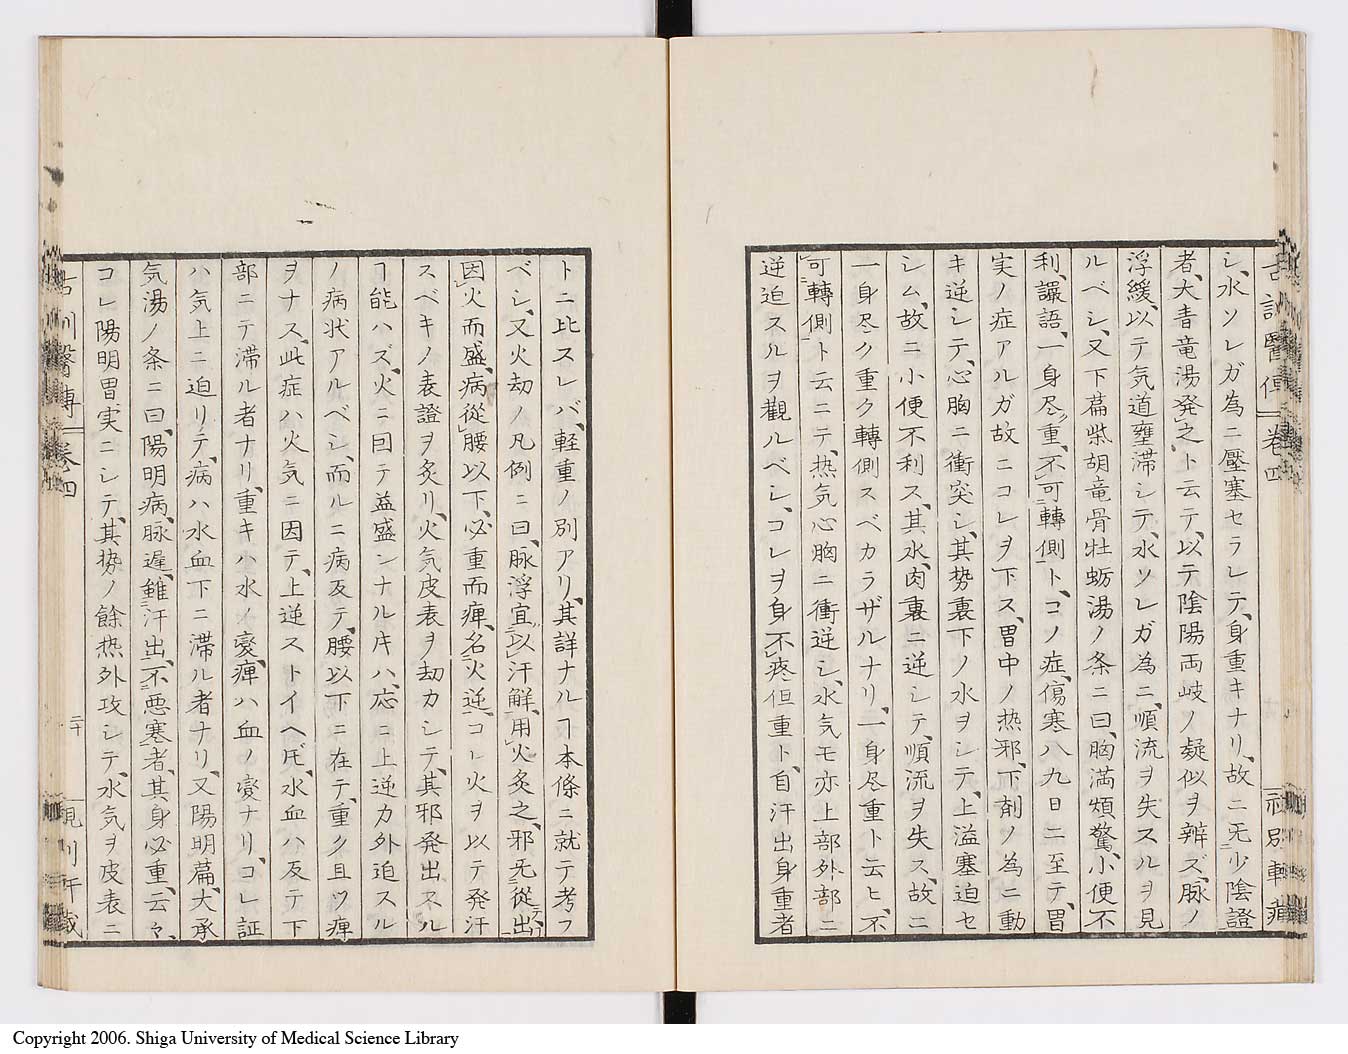 シ、水ソレガ為ニ壓塞セラレテ、身重キナリ、故ニ无少陰證
者、大青竜湯発之、ト云テ、以テ陰陽両岐ノ疑似ヲ辨ズ、脉ノ
浮緩、以テ気道壅滞シテ、水ソレガ為ニ、順流ヲ失スルヲ見
ルベシ、又下篇柴胡竜骨牡蛎湯ノ条ニ曰、胸満煩驚、小便不
利、讝語、一身尽重、不可轉側ト、コノ症、傷寒八九日ニ至テ、胃
実ノ症アルガ故ニコレヲ下ス、胃中ノ热邪、下剤ノ為ニ動
キ逆シテ、心胸ニ衝突シ、其势裏下ノ水ヲシテ、上溢塞迫セ
シム、故ニ小便不利ス、其水、肉裏ニ逆シテ、順流ヲ失ス、故ニ
一身尽ク重ク轉側スベカラザルナリ、一身尽重ト云ヒ、不
可轉側ト云ニテ、热気心胸ニ衝逆シ、水気モ亦上部外部ニ
逆迫スルヲ觀ルベシ、コレヲ身不疼但重ト、自汗出身重者
トニ比スレバ、軽重ノ別アリ、其詳ナルヿ本條ニ就テ考フ
ベシ、又火劫ノ凡例ニ曰、脉浮宜以汗解、用火灸之、邪无從出
因火而盛、病從腰以下、必重而痺、名火逆、コレ火ヲ以テ発汗
スベキノ表證ヲ灸リ、火気皮表ヲ劫カシテ、其邪発出スル
ヿ能ハズ、火ニ因テ益盛ンナル片ハ、応ニ上逆カ外迫スル
ノ病状アルベシ、而ルニ病反テ、腰以下ニ在テ、重ク且ツ痺
ヲナス、此症ハ火気ニ因テ、上逆ストイヘ𪜈、水血ハ反テ下
部ニテ滞ル者ナリ、重キハ水ノ変、痺ハ血ノ変ナリ、コレ証
ハ気上ニ迫リテ、病ハ水血下ニ滞ル者ナリ、又陽明篇、大承
気湯ノ条ニ曰、陽明病、脉遅、雖汗出、不悪寒者、其身必重、云々、
コレ陽明胃実ニシテ、其势ノ餘热外攻シテ、水気ヲ皮表ニ
古訓醫傳 卷四
二十
Copyright 2006. Shiga University of Medical Science Library